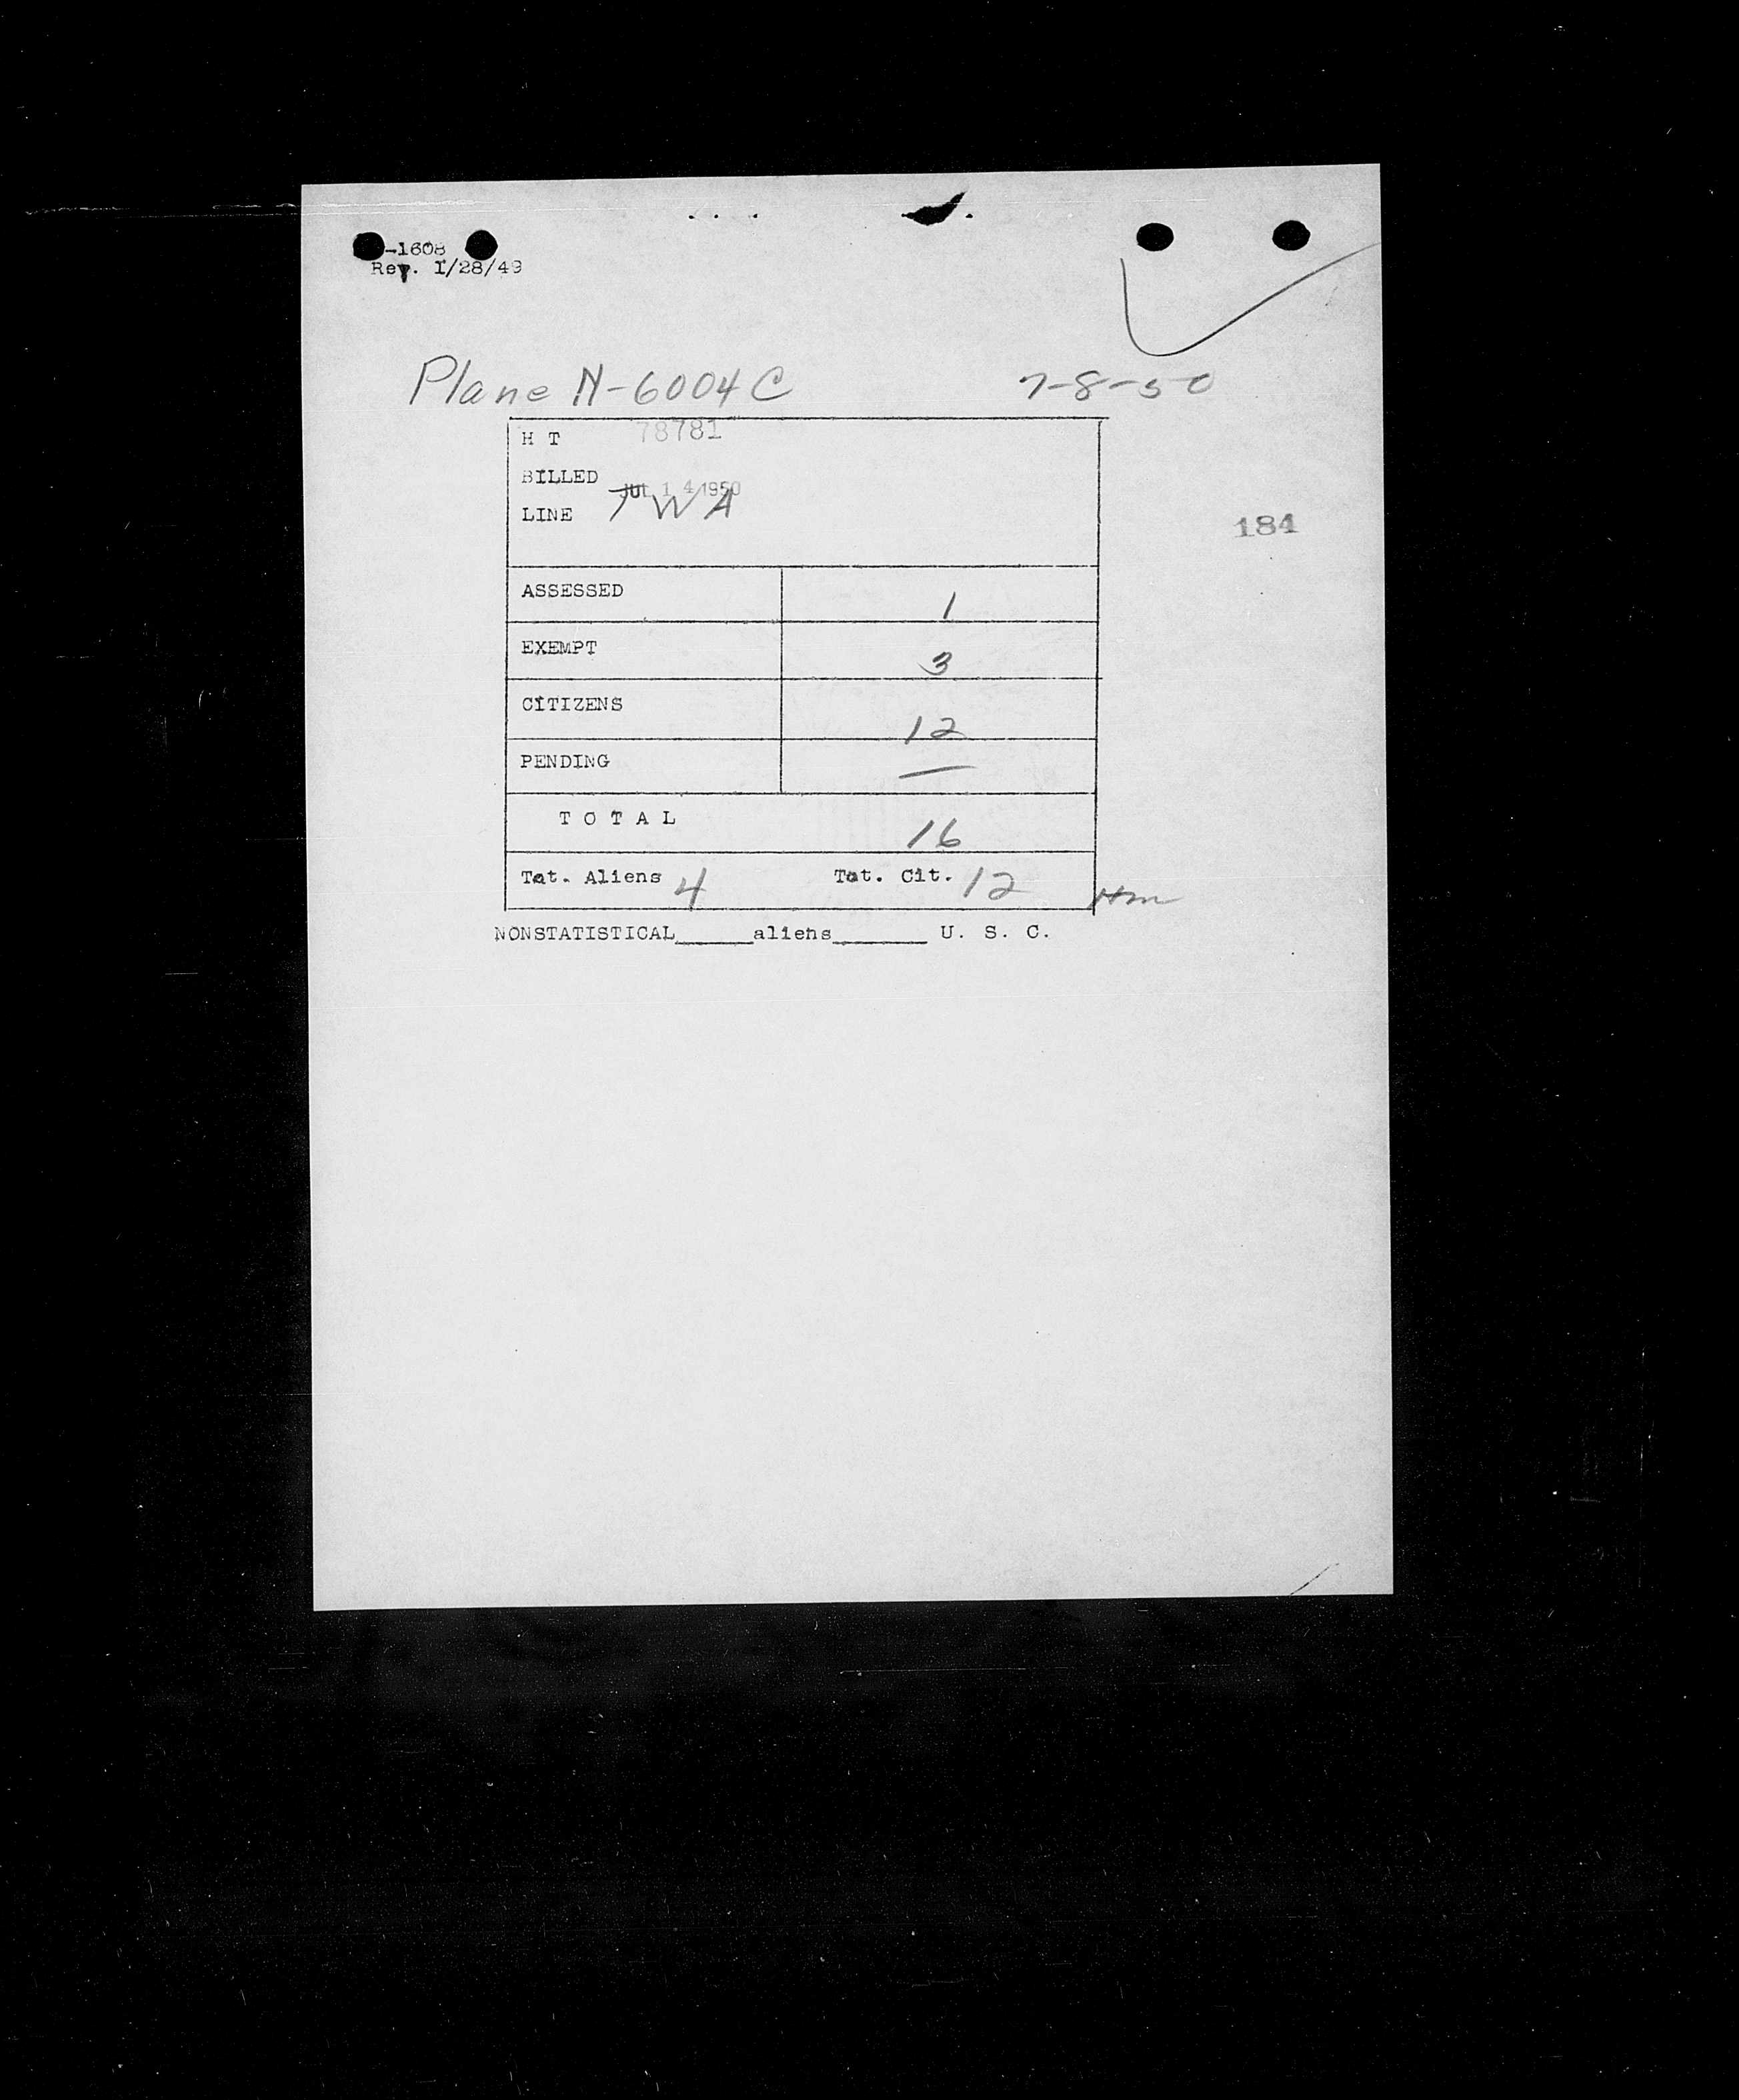 -1608
Rev. 1/28/49
Plane N-6004C 7-8-50
H T 78781
BILLED JUL 14 1950
LINE TWA
184
ASSESSED 1
EXEMPT 3
CITIZENS 12
PENDING —
T O T A L 16
Tot. Aliens 4 Tot. Cit. 12 Hm
NONSTATISTICAL_____aliens______ U. S. C.